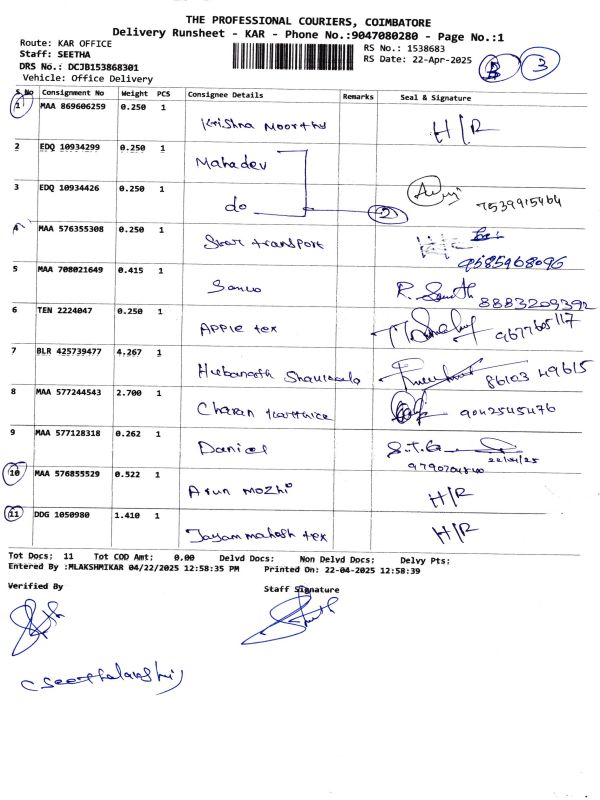 THE PROFESSIONAL COURIERS, COIMBATORE
Delivery Runsheet - KAR - Phone No.:9047080280 - Page No.:1
Route: KAR OFFICE
Staff: SEETHA
DRS No.: DCJB153868301
Vehicle: Office Delivery
RS No.: 1538683
RS Date: 22-Apr-2025
3
S No Consignment No Weight PCS Consignee Details Remarks Seal & Signature
1 MAA 869606259 0.250 1 Krishna Moorthy H/R
2 EDQ 10934299 0.250 1 Mahadev
3 EDQ 10934426 0.250 1 do 2 7539915464
4 MAA 576355308 0.250 1 Star transport 9585968096
5 MAA 708021649 0.415 1 8883209392
6 TEN 2224047 0.250 1 Apple tex 9677605117
7 BLR 425739477 4.267 1 86103 49615
8 MAA 577244543 2.700 1 Charan 9042545476
9 MAA 577128318 0.262 1 Daniel 22/04/25
10 MAA 576855529 0.522 1 Arun Mozhi H/R
11 DDG 1050980 1.410 1 Jayam mahesh tex H/R
Tot Docs: 11 Tot COD Amt: 0.00 Delvd Docs: Non Delvd Docs: Delvy Pts:
Entered By :MLAKSHMIKAR 04/22/2025 12:58:35 PM Printed On: 22-04-2025 12:58:39
Verified By
Staff Signature